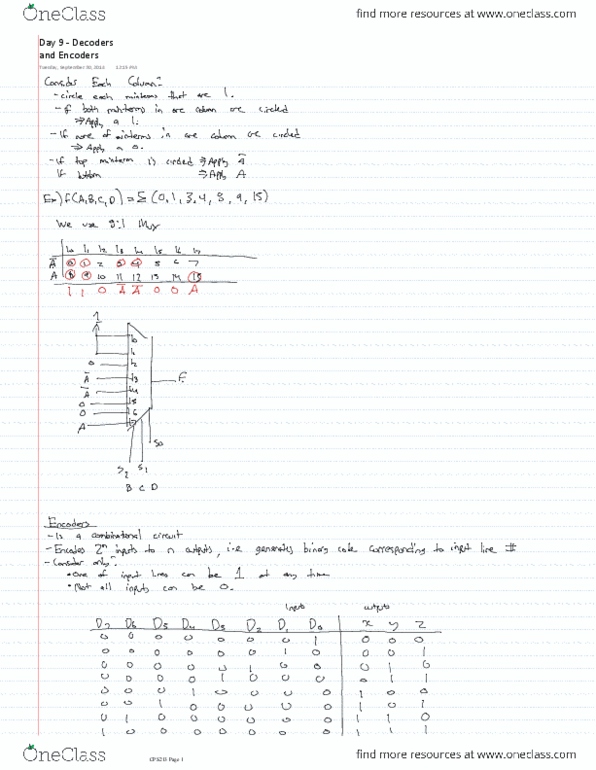 OneClass
find more resources at www.oneclass.com
Day 9 - Decoders
and Encoders
Tuesday, September 30, 2014 12:23 PM
Consider Each Column:
- circle each minterms that are 1.
- if both minterms in one column are circled
⇒ Apply a 1.
- If none of minterms in one column are circled
⇒ Apply a 0.
- if top minterm is circled ⇒ Apply A̅
If bottom ⇒ Apply A
Ex) f(A,B,C,D) = Σ (0, 1, 3, 4, 8, 9, 15)
We use 8:1 Mux
I0 I1 I2 I3 I4 I5 I6 I7
A̅ 0 1 2 3 4 5 6 7
A 8 9 10 11 12 13 14 15
1 1 0 A̅ A̅ 0 0 A
1
I0
I1
0 I2
A̅ I3
A̅ I4
0 I5
0 I6
A I7
F
S0
S2 S1
B C D
Encoders
- Is a combinational circuit
- Encodes 2ⁿ inputs to n outputs, i.e generates binary code corresponding to input line #
- Consider only:
• One of input lines can be 1 at any time
• Not all inputs can be 0.
Inputs outputs
D7 D6 D5 D4 D3 D2 D1 D0 x y z
0 0 0 0 0 0 0 1 0 0 0
0 0 0 0 0 0 1 0 0 0 1
0 0 0 0 0 1 0 0 0 1 0
0 0 0 0 1 0 0 0 0 1 1
0 0 0 1 0 0 0 0 1 0 0
0 0 1 0 0 0 0 0 1 0 1
0 1 0 0 0 0 0 0 1 1 0
1 0 0 0 0 0 0 0 1 1 1
OneClass
Page 1
find more resources at www.oneclass.com